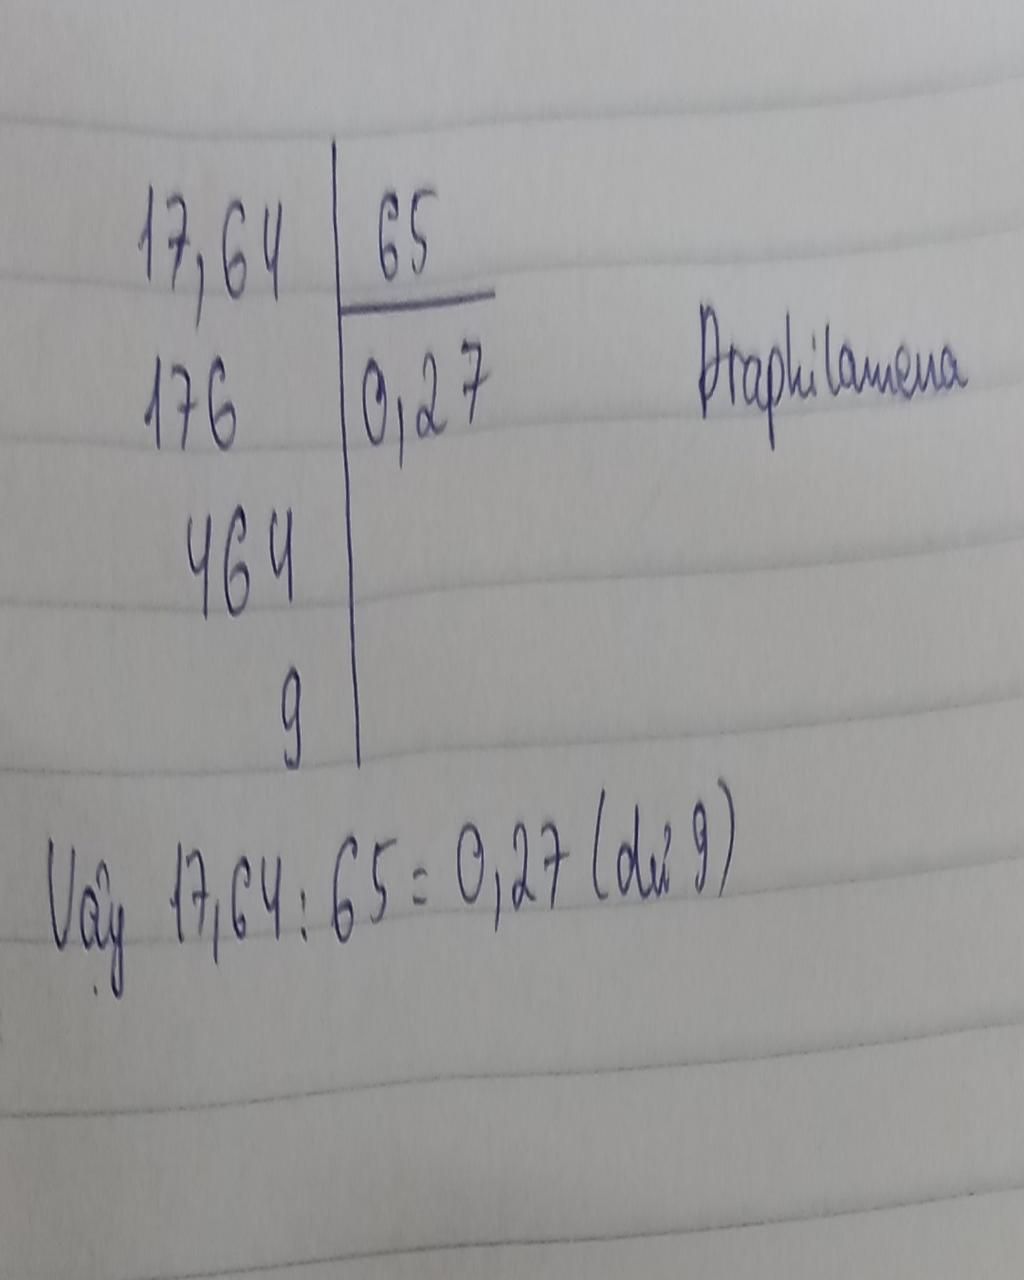 17,64 65
176 0,27 Draphilamena
464
9
Vậy 17,64 : 65 = 0,27 (dư 9)